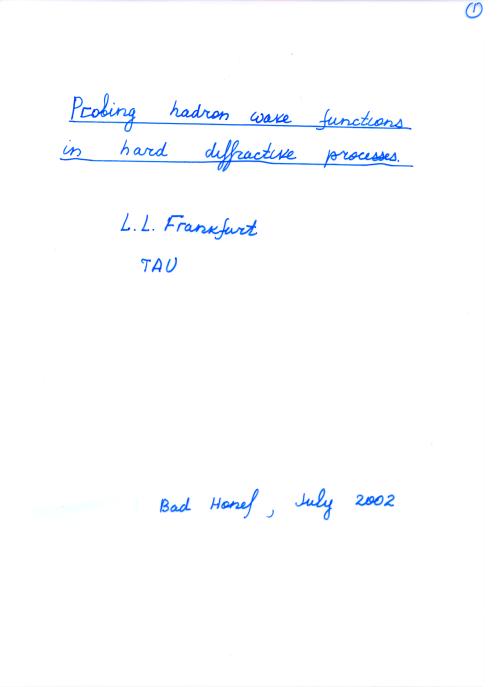 ①
Probing hadron wave functions
in hard diffractive processes.
L.L. Frankfurt
TAU
Bad Honef, July 2002